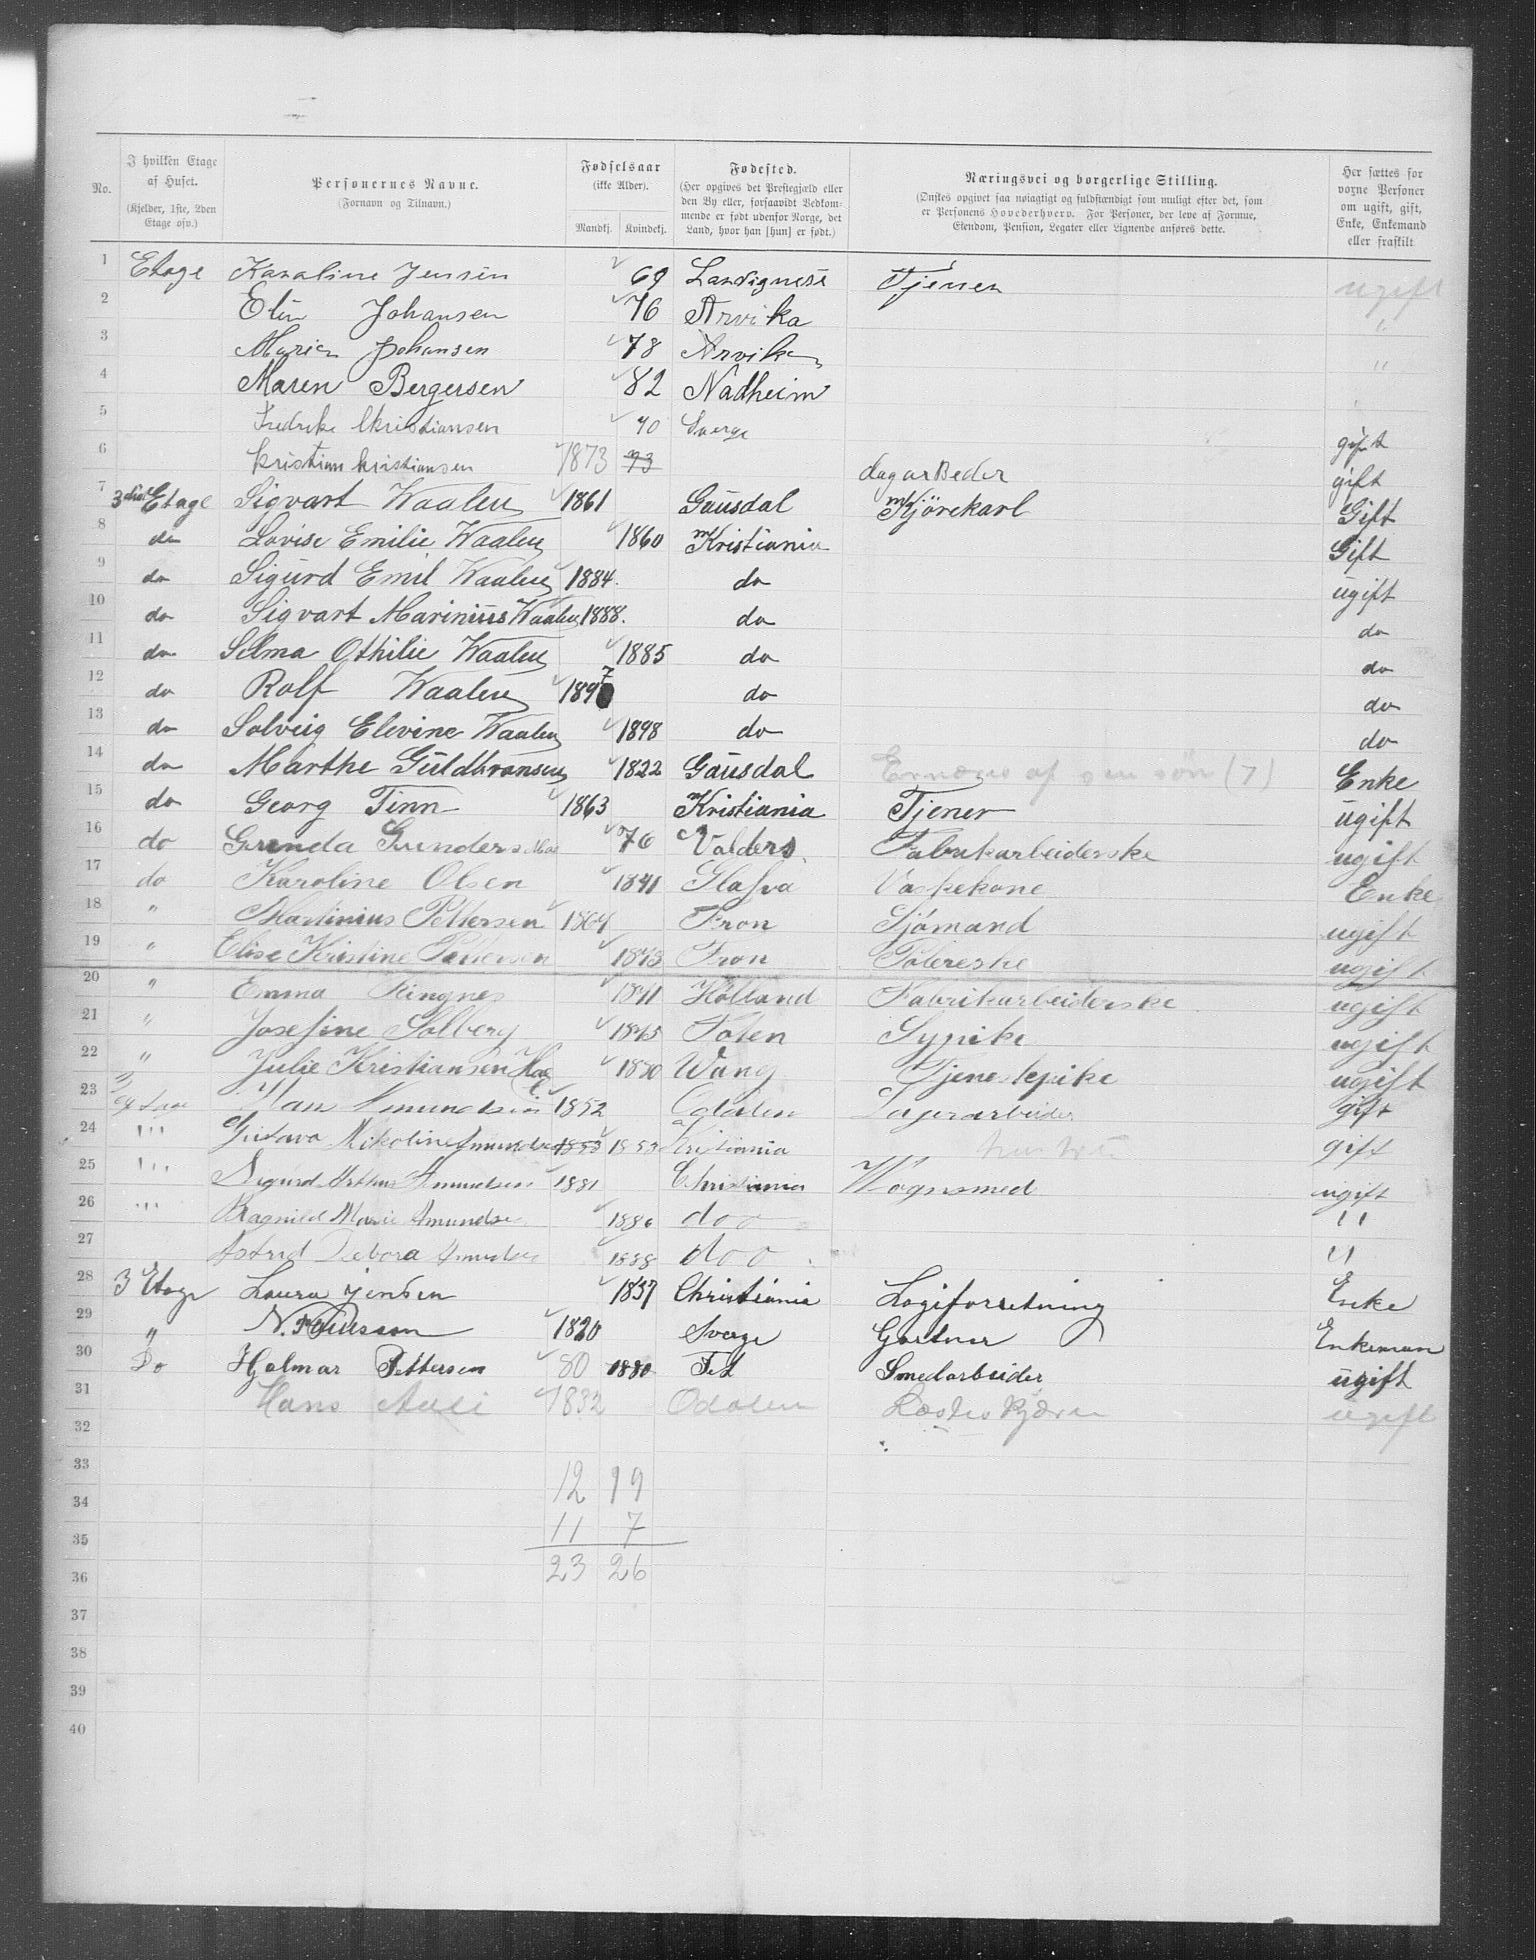 No.
I hvilken Etage af Huset.
(Kjelder, 1ste, 2den Etage osv.)
Personernes Navne.
(Fornavn og Tilnavn.)
Fødselsaar
(ikke Alder).
Mandkj. Kvindekj.
Fødested.
(Her opgives det Prestegjæld eller den By eller, forsaavidt Vedkommende er født udenfor Norge, det Land, hvor han [hun] er født.)
Næringsvei og borgerlige Stilling.
(Ønskes opgivet saa nøiagtigt og fuldstændigt som muligt efter det, som er Personens Hovederhverv. For Personer, der leve af Formue, Eiendom, Pension, Legater eller Lignende anføres dette.
Her sættes for voxne Personer om ugift, gift, Enke, Enkemand eller fraskilt
1 Etage Karaline Jensen 69 Tjener ugift
2 Elin Johansen 76 Arvika "
3 Marie Johansen 78 Arvika "
4 Maren Bergersen 82 Nadheim "
5 Fredrike Christiansen 70 Sverge gift
6 kristian kristiansen 1873 73 dagarBeder gift
7 3die Etage Sigvart Waalen 1861 Gausdal Kjörekarl Gift
8 do Lovise Emilie Waalen 1860 Kristiania Gift
9 do Sigurd Emil Waalen 1884. do ugift
10 do Sigvart Marinius Waalen 1888. do do
11 do Selma Othilie Waalen 1885 do do
12 do Rolf Waalen 1897 do do
13 do Solveig Elevine Waalen 1898 do do
14 do Marthe Guldbransen 1822 Gausdal Ernæres af sin søn (7) Enke
15 do Georg Finn 1863 Kristiania Tjener ugift
16 do Gunda Gunders 76 Valders Fabrikarbeiderske ugift
17 do Karoline Olsen 1841 Glafva Vaskekone Enke
18 " Martinius Pettersen 1864 Fron Sjömand ugift
19 " Elise Kristine Pettersen 1843 Fron ugift
20 " Emma Ringnes 1841 Hölland Fabrikarbeiderske ugift
21 " Josefine Solberg 1845 Toten Sypike ugift
22 " Julie Kristiansen 1880 Wang Tjenestepike ugift
23 1852 Odalen Lagerarbeider gift
24 " Gustava Nikoline Amundsen 1853 1853 Kristiania gift
25 " Sigurd Arthur Amundsen 1881 Christiania Vognsmed ugift
26 " Ragnild Marie Amundsen 1886 do o "
27 Astrid Debora Amundsen 1888 do o "
28 3 Etage Laura Jensen 1837 Christiania Logiforretning Enke
29 " N. Poulsson 1820 Sverge Gartner Enkeman
30 Do Hjalmar Pettersen 80 1880 Fet Smedarbeider ugift
31 Hans 1832 Odalen ugift
32
33 12 19
34 11 7
35 23 26
36
37
38
39
40